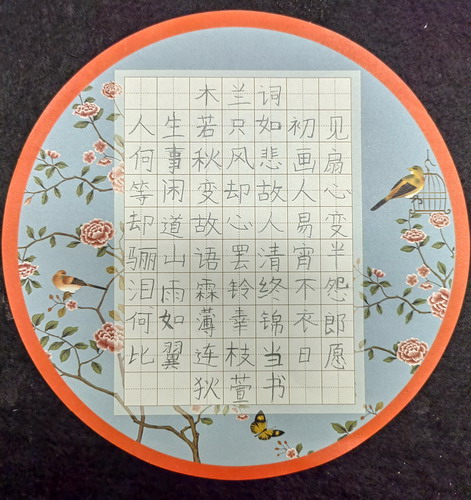 木兰词
人生若只如初见
何事秋风悲画扇
等闲变却故人心
却道故心人易变
骊山语罢清宵半
泪雨霖铃终不怨
何如薄幸锦衣郎
比翼连枝当日愿
狄萱书